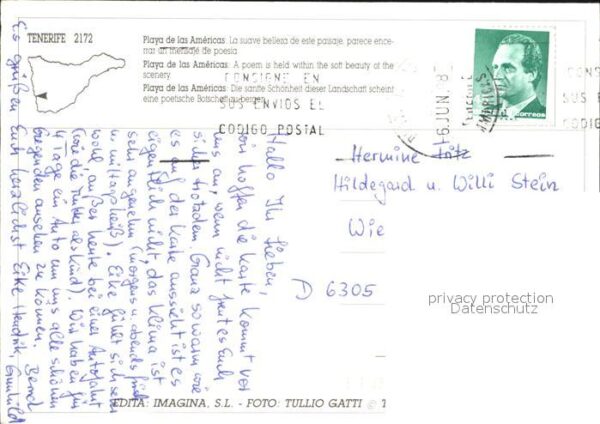 TENERIFE 2172
Playa de las Américas: La suave belleza de este paisaje, parece ence-
rrar un mensaje de poesia
Playa de las Américas: A poem is held within the soft beauty of the
scenery
Playa de las Américas: Die sanfte Schönheit dieser Landschaft scheint
eine poetische Botschaft zu bergen
CONSIGNE EN
SUS ENVIOS EL
CODIGO POSTAL
6 JUN. 8
correos
CONSI
SUS E
CODIG
Hermine
Hildegard u. Willi Stein
Wie
D 6305
privacy protection
Datenschutz
Hallo Ihr Lieben,
wir hoffen die Karte kommt vor
uns an, wenn nicht freut es Euch
sicher trotzdem. Ganz so warm wie
es auf der Karte aussieht ist es
eigentlich nicht, das Klima ist
sehr angenehm (morgens u. abends frisch
u. mittags heiß). Eike fühlt sich sehr
wohl, außer heute bei einer Autofahrt
(wie die Mutter als Kind). Wir haben für
4 Tage ein Auto um uns alle schönen
Gegenden ansehen zu können.
Es grüßen Euch herzlichst Eike Hendrik, Gunhild
Bernd
EDITA: IMAGINA, S.L. - FOTO: TULLIO GATTI © T